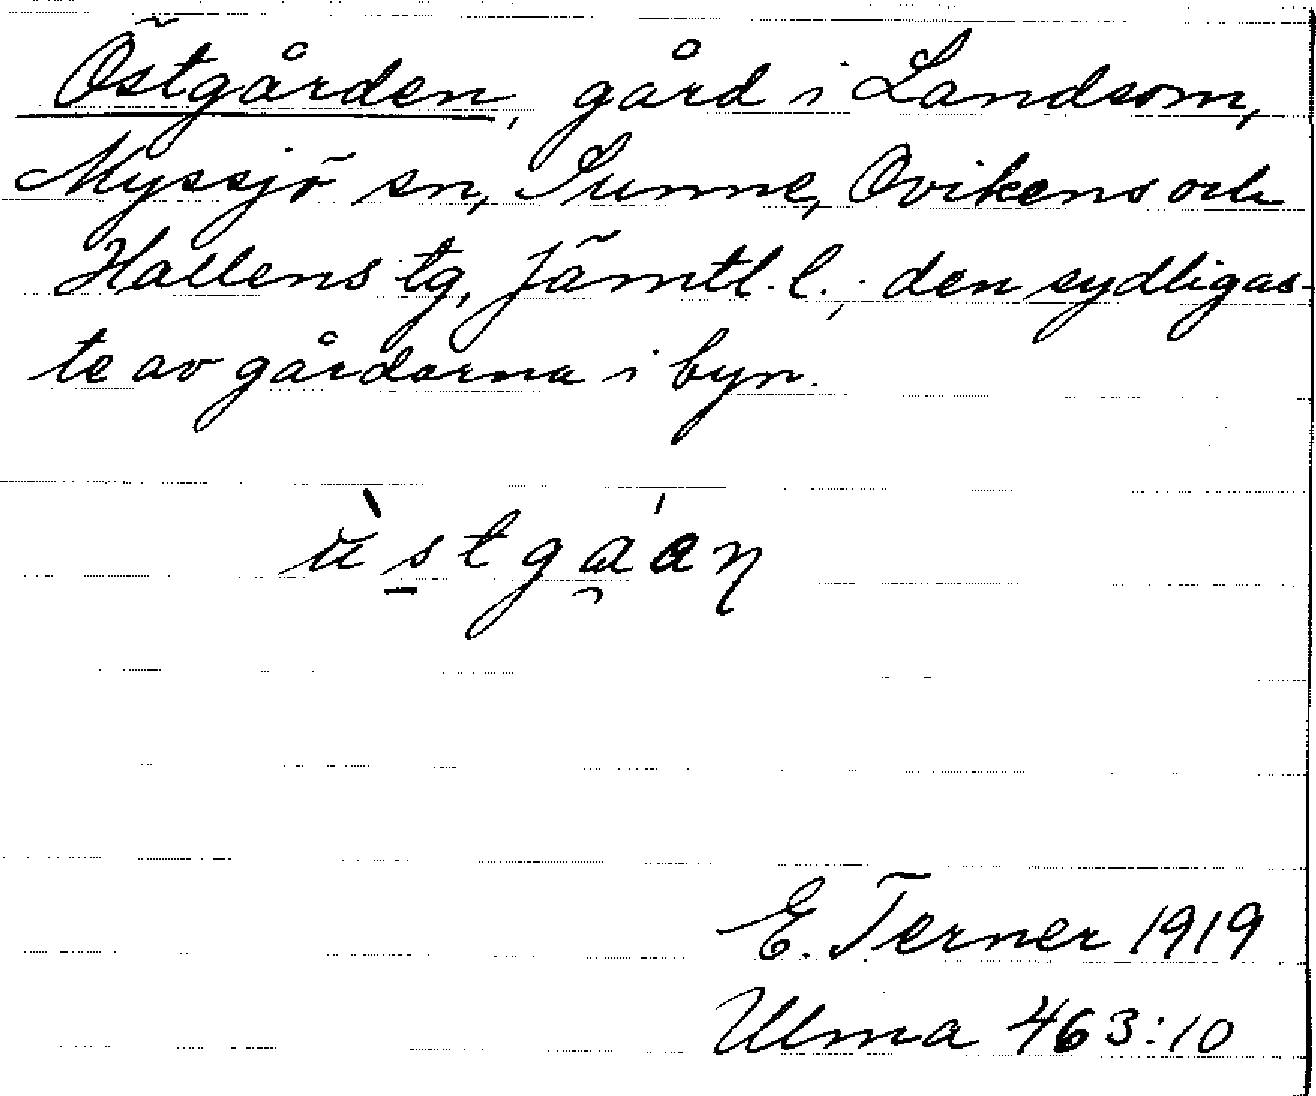 Östgården, gård i Landsom,
Myssjö sn, Sunne, Ovikens och
Hallens tg, Jämtl. l.; den sydligas-
te av gårdarna i byn.
E. Terner 1919
Ulma 463:10